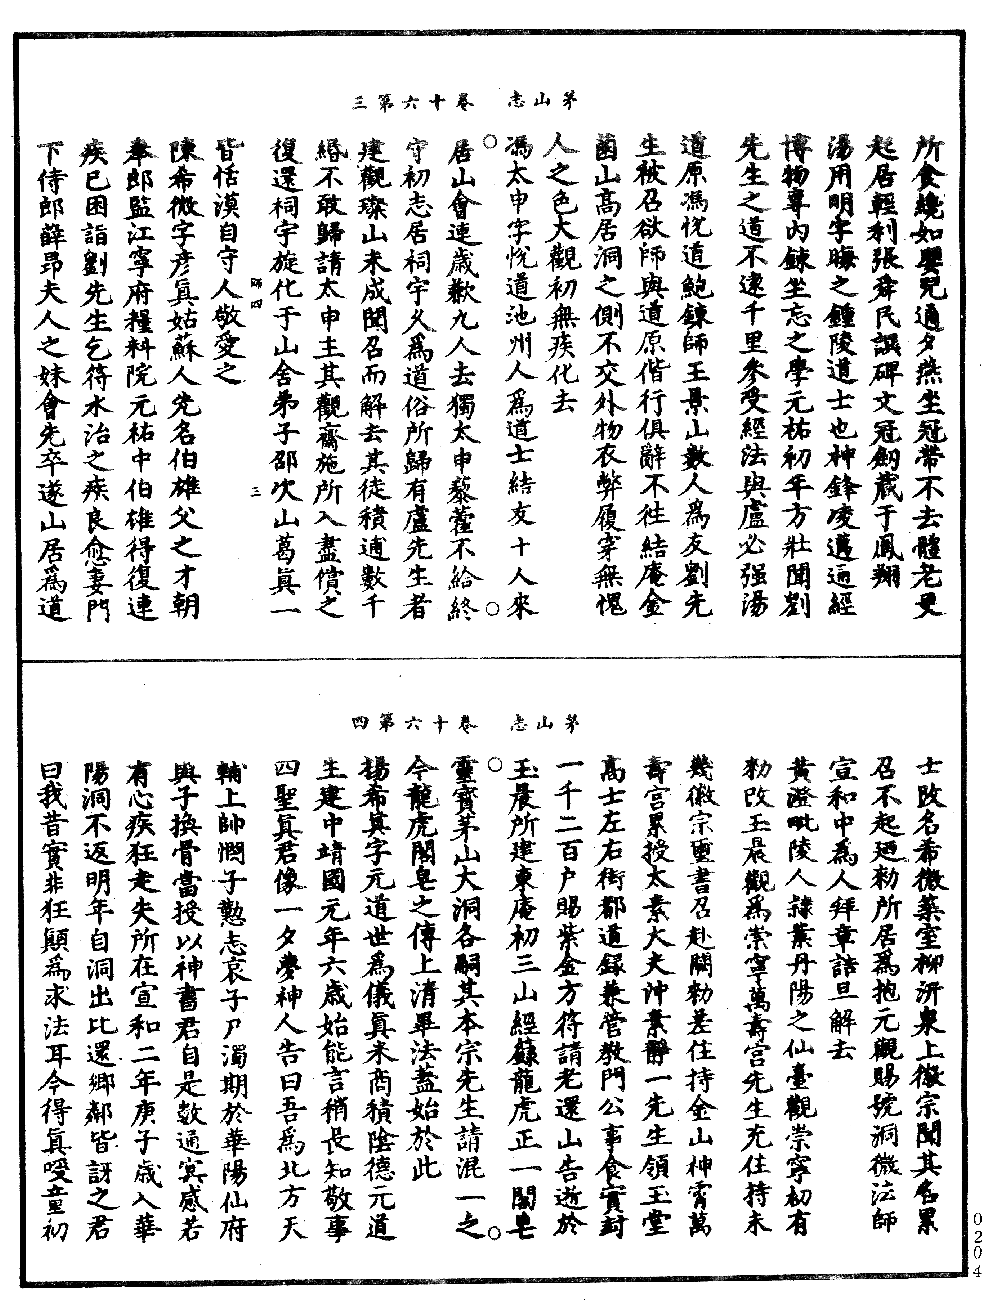 茅山志　卷十六第三
所食纔如嬰兒通夕燕坐冠帶不去體老更
起居輕利張舜民譔碑文冠劒藏于鳳翔
湯用明字晦之鍾陵道士也神鋒凌邁遍經
博物專內鍊坐忘之學元祐初年方壯聞劉
先生之道不遠千里參受經法與盧必强湯
道原馮悅道鮑鍊師王景山數人爲友劉先
生被召欲師與道原偕行俱辭不往結庵金
菌山高居洞之側不交外物衣弊履穿無愧
人之色大觀初無疾化去
馮太申字悅道池州人爲道士結友十人來
居山會連歲歉九人去獨太申藜藿不給終
守初志居祠宇乂爲道俗所歸有盧先生者
建觀璨山未成聞召而解去其徒積逋數千
緡不敢歸請太申主其觀齋施所入盡償之
復還祠宇旋化于山舍弟子邵次山葛眞一
師四　三
皆恬漠自守人敬愛之
陳希微字彦眞姑蘇人先名伯雄父之才朝
奉郎監江寧府糧料院元祐中伯雄得復連
疾已困詣劉先生乞符水治之疾良愈妻門
下侍郎薛昂夫人之妹會先卒遂山居爲道
茅山志　卷十六第四
士改名希微築室柳汧泉上徽宗聞其名累
召不起廼勑所居爲抱元觀賜號洞微法師
宣和中爲人拜章詰旦解去
黃澄毗陵人隷業丹陽之仙臺觀崇寧初有
勑改玉晨觀爲崇寧萬壽宮先生充住持未
幾徽宗璽書召赴闕勑差住持金山神霄萬
壽宮累授太素大夫沖素靜一先生領玉堂
高士左右街都道錄兼管教門公事食實封
一千二百户賜紫金方符請老還山告逝於
玉晨所建東庵初三山經籙龍虎正一閤皂
靈寶茅山大洞各嗣其本宗先生請混一之
今龍虎閣皂之傳上清畢法蓋始於此
楊希眞字元道世爲儀眞米商積陰德元道
生建中靖國元年六歲始能言稍長知敬事
四聖眞君像一夕夢神人告曰吾爲北方天
輔上帥憫子懃志哀子尸濁期於華陽仙府
與子換骨當授以神書君自是數通冥感若
有心疾狂走失所在宣和二年庚子歲入華
陽洞不返明年自洞出比還鄉鄰皆訝之君
曰我昔實非狂顚爲求法耳今得眞嘤童初
0204